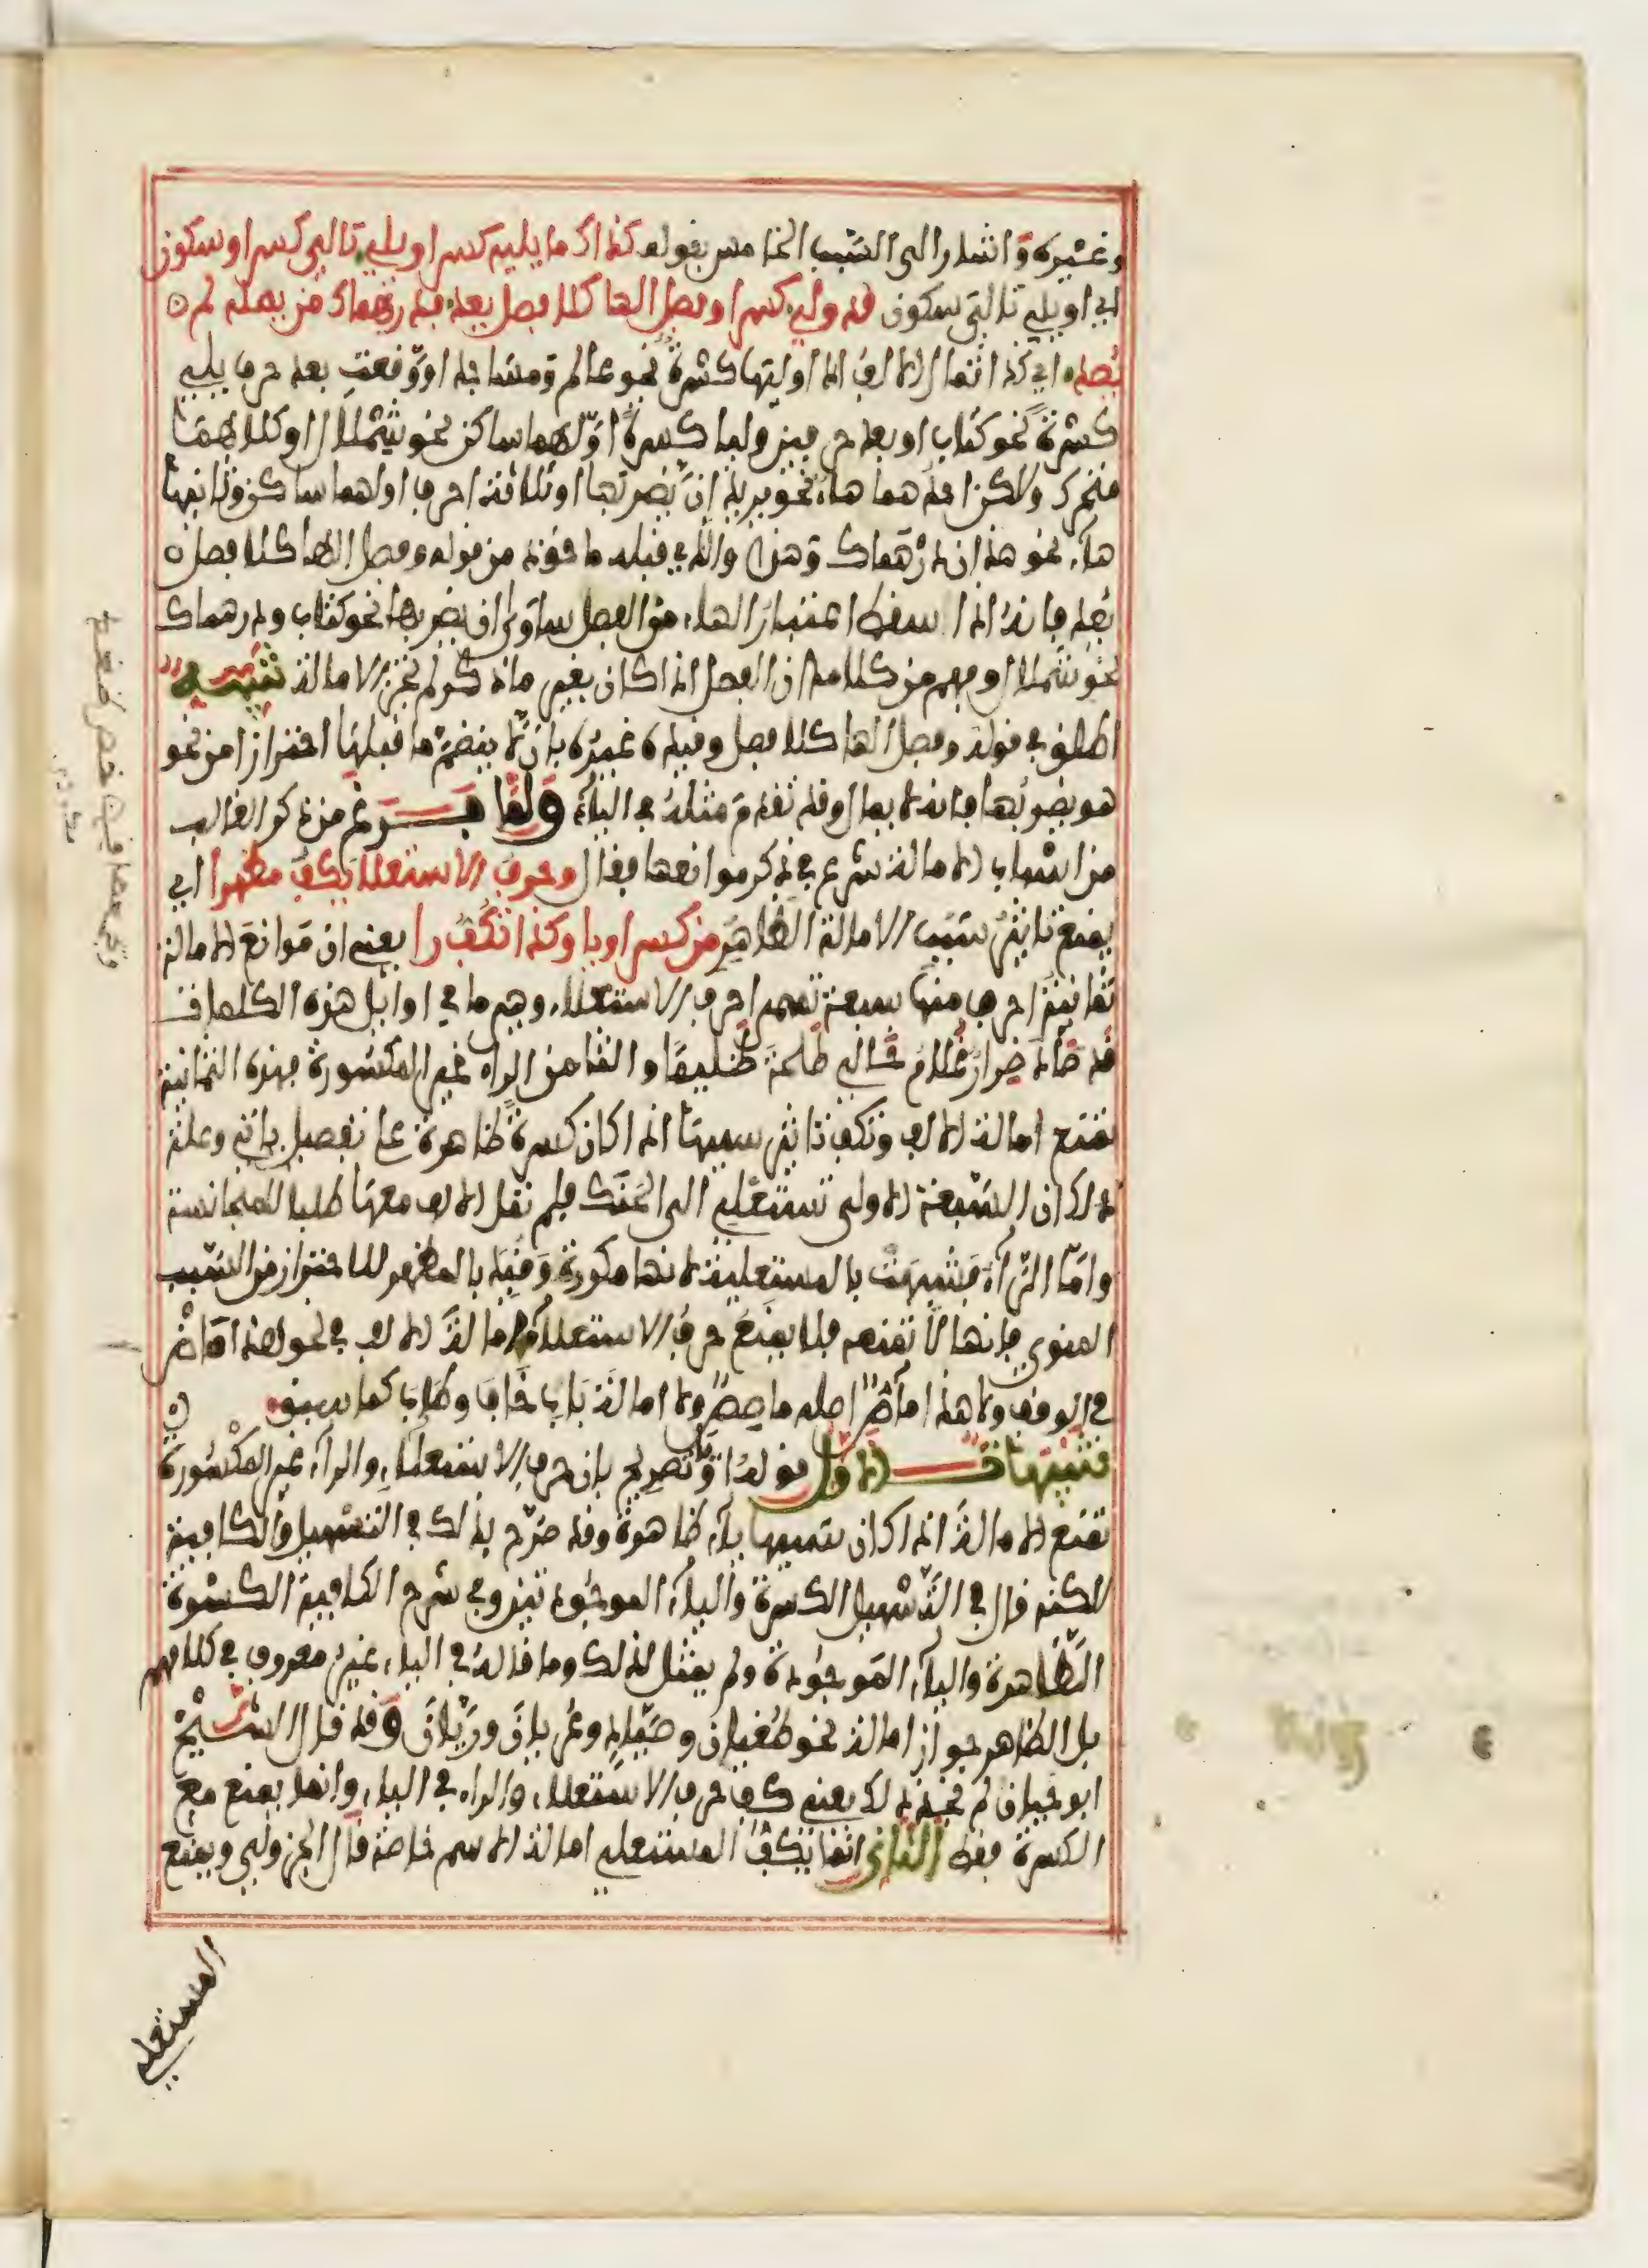 وغيره وأشار الى السبب الخامس بقوله كذاك ما يليه كسر او يلي تالي كسر او سكون
اي او يلي تالي سكون قد ولي كسرا وفصل الها كلا فصل يعد فدرهماك من يمله لم
يصد اي كذا تمال الالف اذا وليتها كسرة نحو عالم ومساجد او وقعت بعد حرف يلي
كسرة نحو كتاب او بعد حرفين وليا كسرة اولهما ساكن نحو شملال او كلاهما
متحرك ولاكن احدهما هاء نحو يريد ان يضربها او ثلاثة احرف اولها ساكن وثانيها
هاء نحو هذان درهماك وهذا والذي قبله ماخوذ من قوله وفصل الها كلا فصل
يعد فانه اذا سقط اعتبار الهاء من الفصل ساوى ان يضربها نحو كتاب ودرهماك
نحو شملال وفهم من كلامه ان الفصل اذا كان بغير ما ذكر لم تجز الامالة تنبيه
اطلق في قوله وفصل الها كلا فصل وقيده غيره بان لا ينضم ما قبلها احترازا من نحو
هو يضربها فانه لا يمال وقد تقدم مثله في الياء ولما فرغ من ذكر الغالب
من اسباب الامالة شرع في ذكر موانعها فقال وحرف الاستعلا يكف مظهرا اي
يمنع تاثير سبب الامالة الظاهر من كسر او يا وكذا تكف را يعني ان موانع الامالة
ثمانية احرف منها سبعة تسمى احرف الاستعلاء وهي ما في اوايل هذه الكلمات
قد صاد ضرار غلام خالي طلحة ظليما والثامن الراء غير المكسورة فهذه الثمانية
تمنع امالة الالف وتكف تاثير سببها اذا كان كسرة ظاهرة على تفصيل ياتي وعلة
ذلك ان السبعة الاولى تستعلي الى الحنك فلم تمل الالف معها طلبا للمجانسة
واما الراء فشبهت بالمستعلية لانها مكررة وقيد بالمظهر للاحتراز من السبب
المنوي فانها لا تمنعه فلا يمنع حرف الاستعلاء امالة الالف في نحو هذا قاض
في الوقف ولا هذا ماص اصله ماصص ولا امالة باب خاف وطاب كما سبق
تنبيهات الاول قوله او يا تصريح بان حرف الاستعلاء والراء غير المكسورة
تمنع الامالة اذا كان سببها ياء ظاهرة وقد صرح بذلك في التسهيل والكافية
لكنه قال في التسهيل الكسرة والياء الموجودتين وفي شرح الكافية الكسرة
الظاهرة والياء الموجودة ولم يمثل لذلك وما قاله في الياء غير معروف في كلامهم
بل الظاهر جواز امالة نحو طغيان وصياد وعريان وريان وقد قال الشيخ
ابو حيان لم نجد ذلك يعني كف حرف الاستعلاء والراء في الياء وانما يمنع مع
الكسرة فقط الثاني انما يكف المستعلي امالة الاسم خاصة قال الجزولي ويمنع
المستعلي